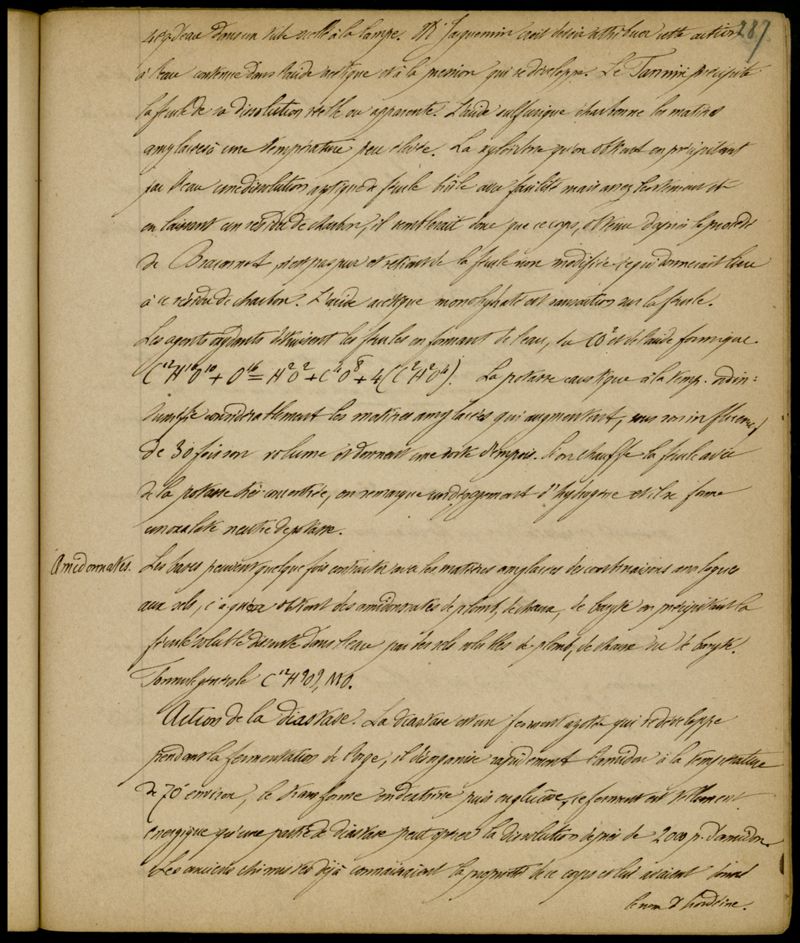 287
d'eau dans un tube scellé à la lampe. Mr Jaquemin croit devoir attribuer cette action
à l'eau contenue dans l'acide acétique et à la pression qui se développe. Le Tannin précipite
la fécule de sa dissolution réelle ou apparente. L'acide sulfurique charbonne les matières
amylacées à une température peu élevée. La xyloïdine qu'on obtient en précipitant
par l'eau une dissolution de fécule brûle avec facilité mais assez lentement et
en laissant un résidu de charbon, il semblerait donc que ce corps, obtenu d'après le procédé
de Braconnot, n'est pas pur et retient de la fécule non modifiée ce qui donnerait lieu
à ce résidu de charbon. L'acide acétique monohydraté est sans action sur la fécule.
Les agents oxydants détruisent les fécules en formant de l'eau, du CO² et de l'acide formique.
C¹²H¹⁰O¹⁰ + O¹⁶ = H²O² + C⁴O⁸ + 4(C²H²O⁴). La potasse caustique à la temp. ordin:
tuméfie considérablement les matières amylacées qui augmentent, sous son influence,
de 30 fois son volume et donnent une sorte d'empois. Si on chauffe la fécule avec
de la potasse très concentrée, on remarque un dégagement d'hydrogène et il se forme
un oxalate neutre de potasse.
Amidonnates. Les bases peuvent quelque fois contracter avec les matières amylacées des combinaisons analogues
aux sels, c'est ainsi qu'on obtient des amidonnates de plomb, de chaux, de baryte en précipitant la
fécule soluble dissoute dans l'eau par des sels solubles de plomb, de chaux ou de baryte.
Formule générale C¹²H⁹O⁹, MO.
Action de la diastase. La diastase est un ferment azoté qui se développe
pendant la fermentation de l'orge, il désorganise rapidement l'amidon à la température
de 70° environ, le transforme en dextrine puis en glucose, ce ferment est tellement
énergique qu'une partie de diastase peut opérer la dissolution de près de 2000 p. d'amidon.
Les anciens chimistes déjà connaissaient la propriété de ce corps et lui avaient donné
le nom d'hordéine.